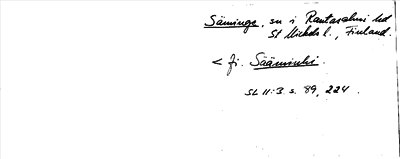 Säminge, sn i Rantasalmi hd
St Mickels l., Finland.
< fi. Sääminki.
SL 11:3 s. 89, 224.